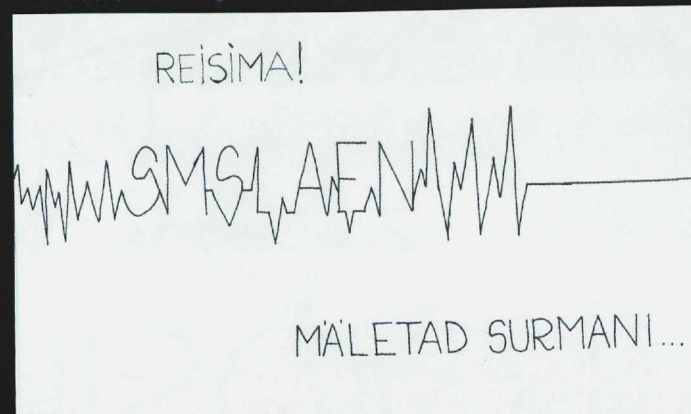 REISIMA!
SMSLAEN
MÄLETAD SURMANI...